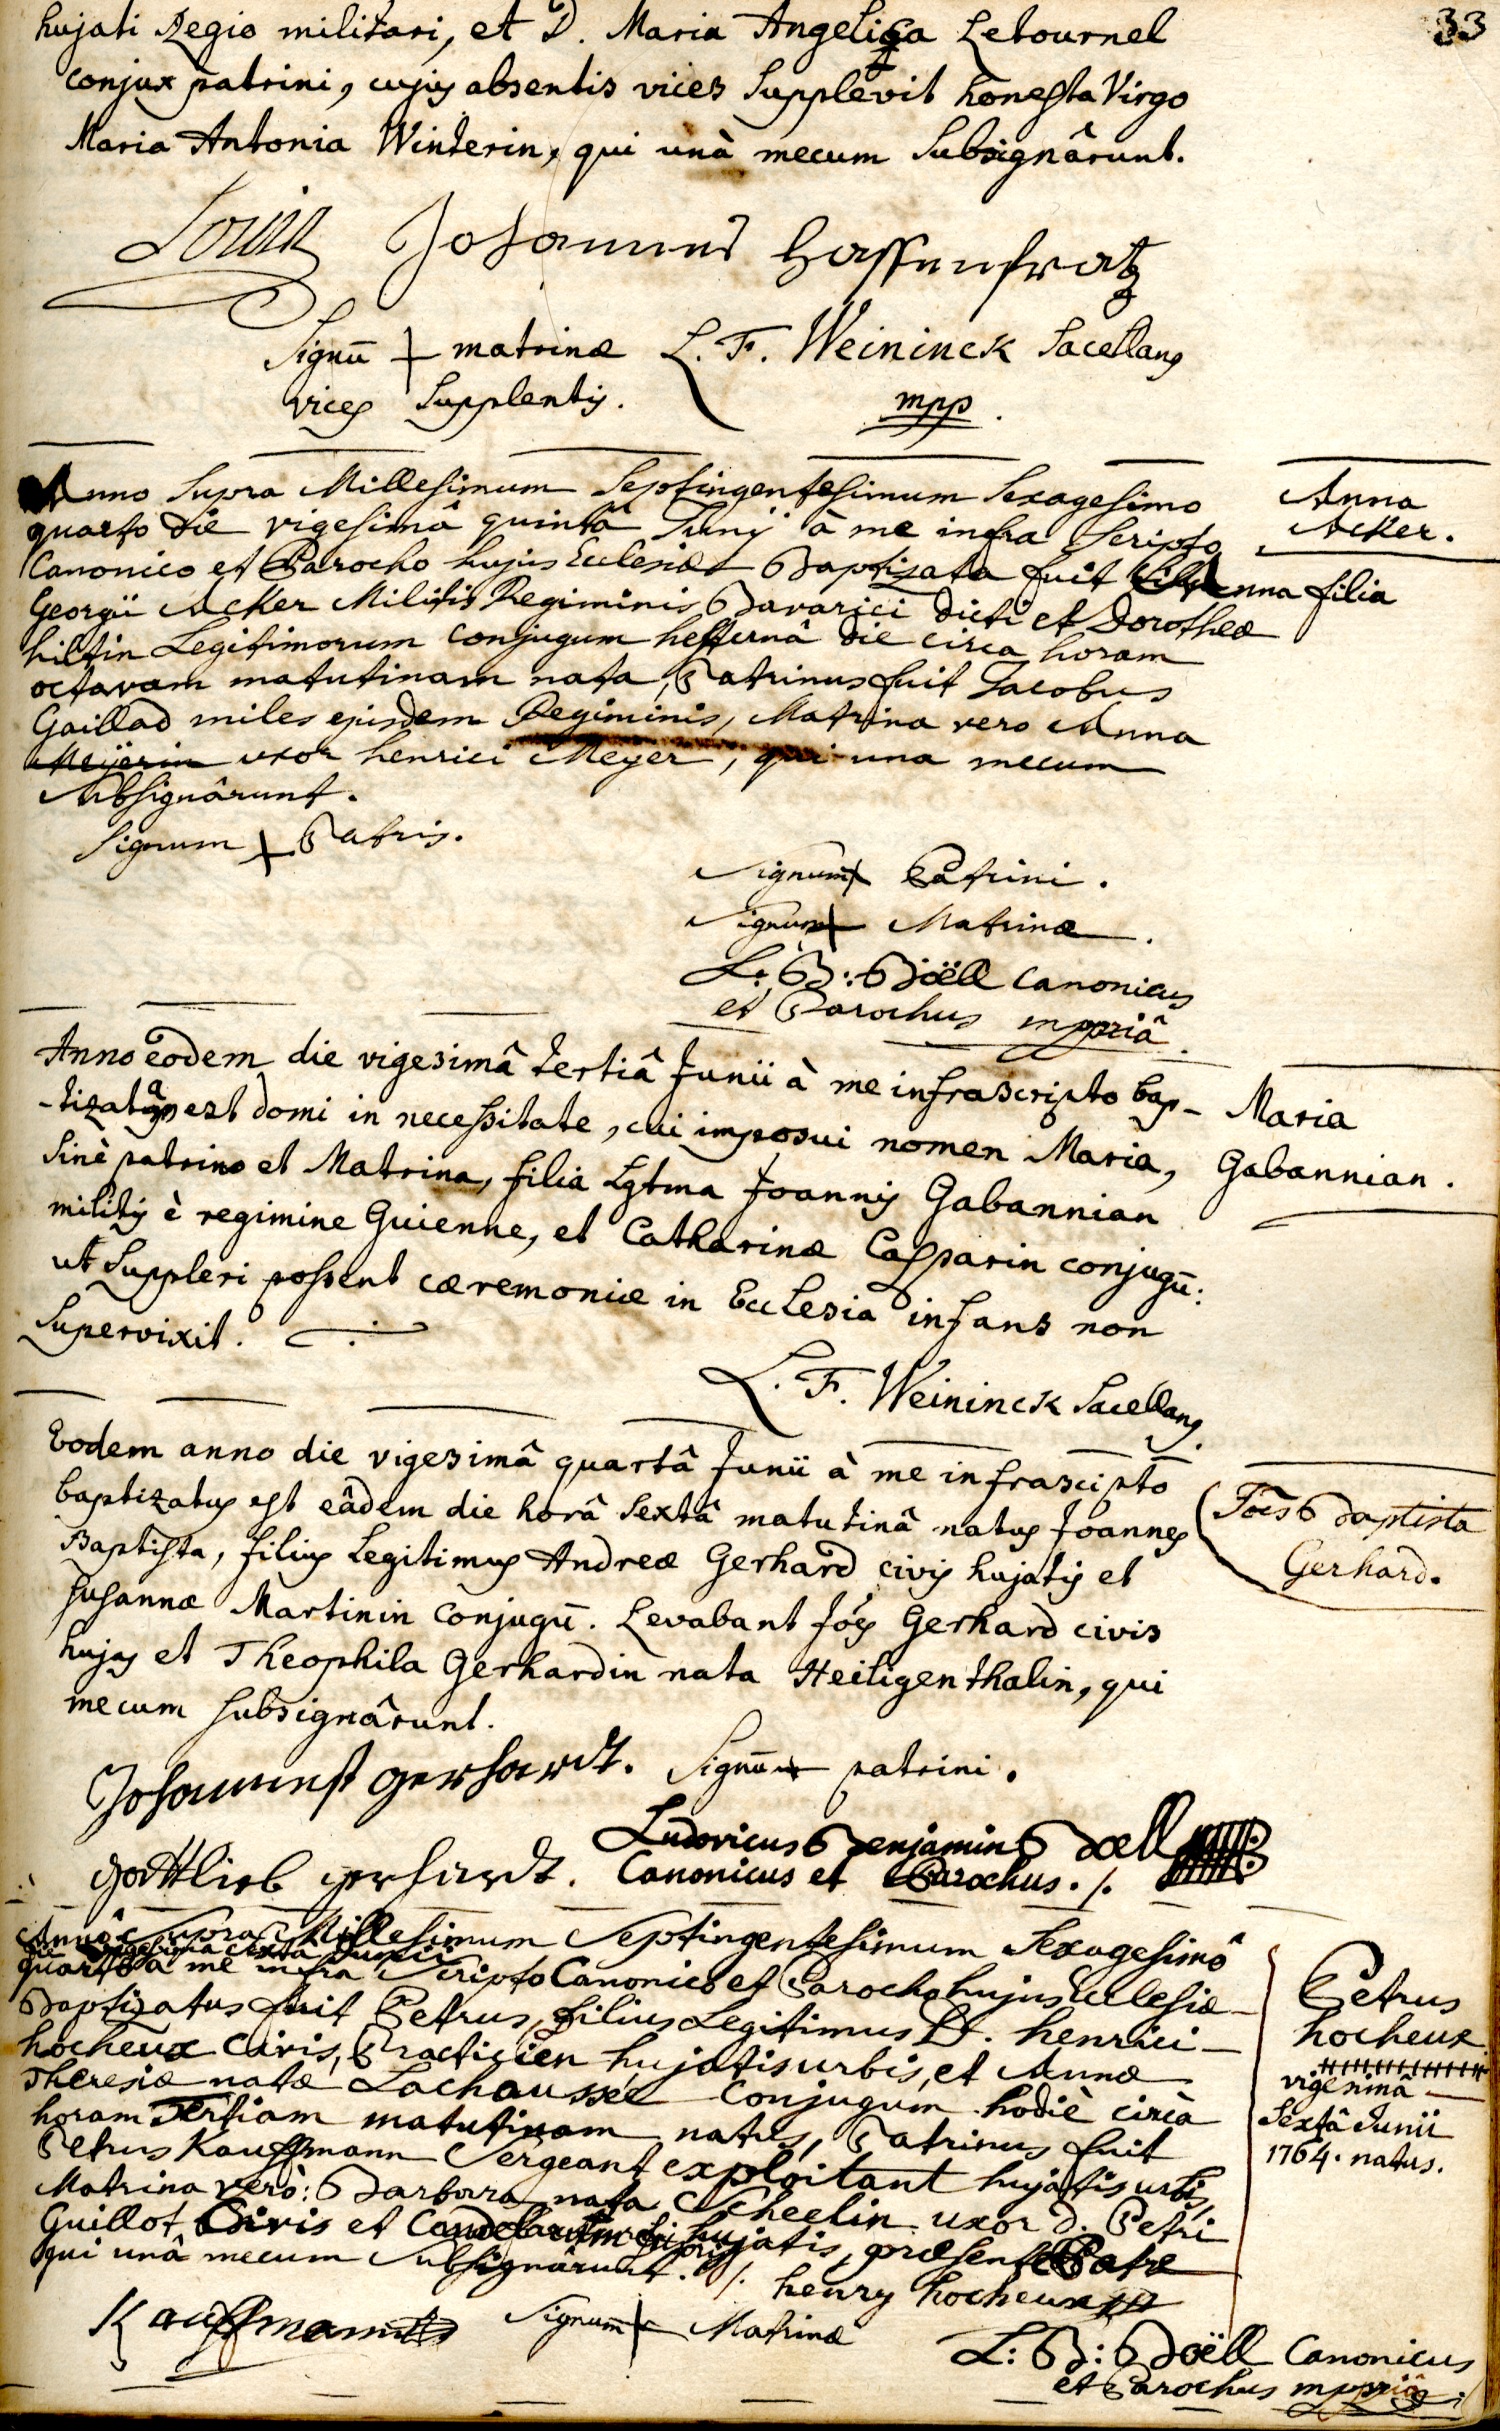 33
hujati Regio militari, et D. Maria Angelica Letournel
conjux patrini, cujus absentis vices Supplevit honesta Virgo
Maria Antonia Winterin, qui unà mecum Subsignârunt.
Louis Johannes Hassenfratz
Signū + matrinæ L. F. Weininck Sacellanus
vices Supplentis. mpp.
Anno Supra Millesimum Septingentesimum Sexagesimo
quarto die vigesimâ quintâ Junij à me infra Scripto
Canonico et Parocho hujus Ecclesiæ Baptizata fuit Anna filia
Georgii Acker Militis Regiminis Bavarici dicti et Dorotheæ
hiltin Legitimorum conjugum hesternâ die circa horam
octavam matutinam nata, Patrinus fuit Jacobus
Gaillad miles ejusdem Regiminis, Matrina vero Anna
Meÿerin uxor henrici Meyer, qui una mecum
subsignârunt.
Anna
Acker.
Signum + Patris.
Signum + Patrini.
Signum + Matrinæ.
L: B: Boëll Canonicus
et Parochus mppriâ.
Anno eodem die vigesimâ tertiâ Junii à me infrascripto bap-
-tizata est domi in necessitate, cui imposui nomen Maria,
Sinè patrino et Matrina, filia Lgtma Joannis Gabannian
militis è regimine Guienne, et Catharinæ Casparin conjugū:
ut Suppleri possent cæremoniæ in Ecclesia infans non
Supervixit.
Maria
Gabannian.
L. F. Weininck Sacellanus.
Eodem anno die vigesimâ quartâ Junii à me infrascipto
baptizatus est eâdem die horâ Sextâ matutinâ natus Joannes
Baptista, filius Legitimus Andreæ Gerhard civis hujatis et
Susannæ Martinin conjugū. Levabant Jōes Gerhard civis
hujas et Theophila Gerhardin nata Heiligenthalin, qui
mecum subsignârunt.
Jōes Baptista
Gerhard.
Johannes gerhardt. Signū + patrini.
Ludovicus Benjamin Boell
gottlieb gerhardt. Canonicus et Parochus./.
Anno Supra Millesimum Septingentesimum Sexagesimô
die vigesima sexta Junii
quarto à me infra Scripto Canonico et Parocho hujus Ecclesiæ
Baptizatus fuit Petrus, filius Legitimus D. henrici
hocheux Civis, Practicien hujatis urbis, et Annæ
Theresiæ natæ Lachaussée Conjugum hodiè circà
horam Tertiam matutinam natus, Patrinus fuit
Petrus Kauffmann Sergeant exploitant hujatis urbis,
Matrina verò: Barbara nata Scheelin uxor d. Petri
Guillot, Civis et hujatis, præsente Patre
qui unâ mecum subsignârunt./.
Petrus
hocheux
vigesimâ
Sextâ Junii
1764. natus.
henry hocheux
Kauffmann Signum + Matrinæ
L: B: Boëll Canonicus
et Parochus mppriâ